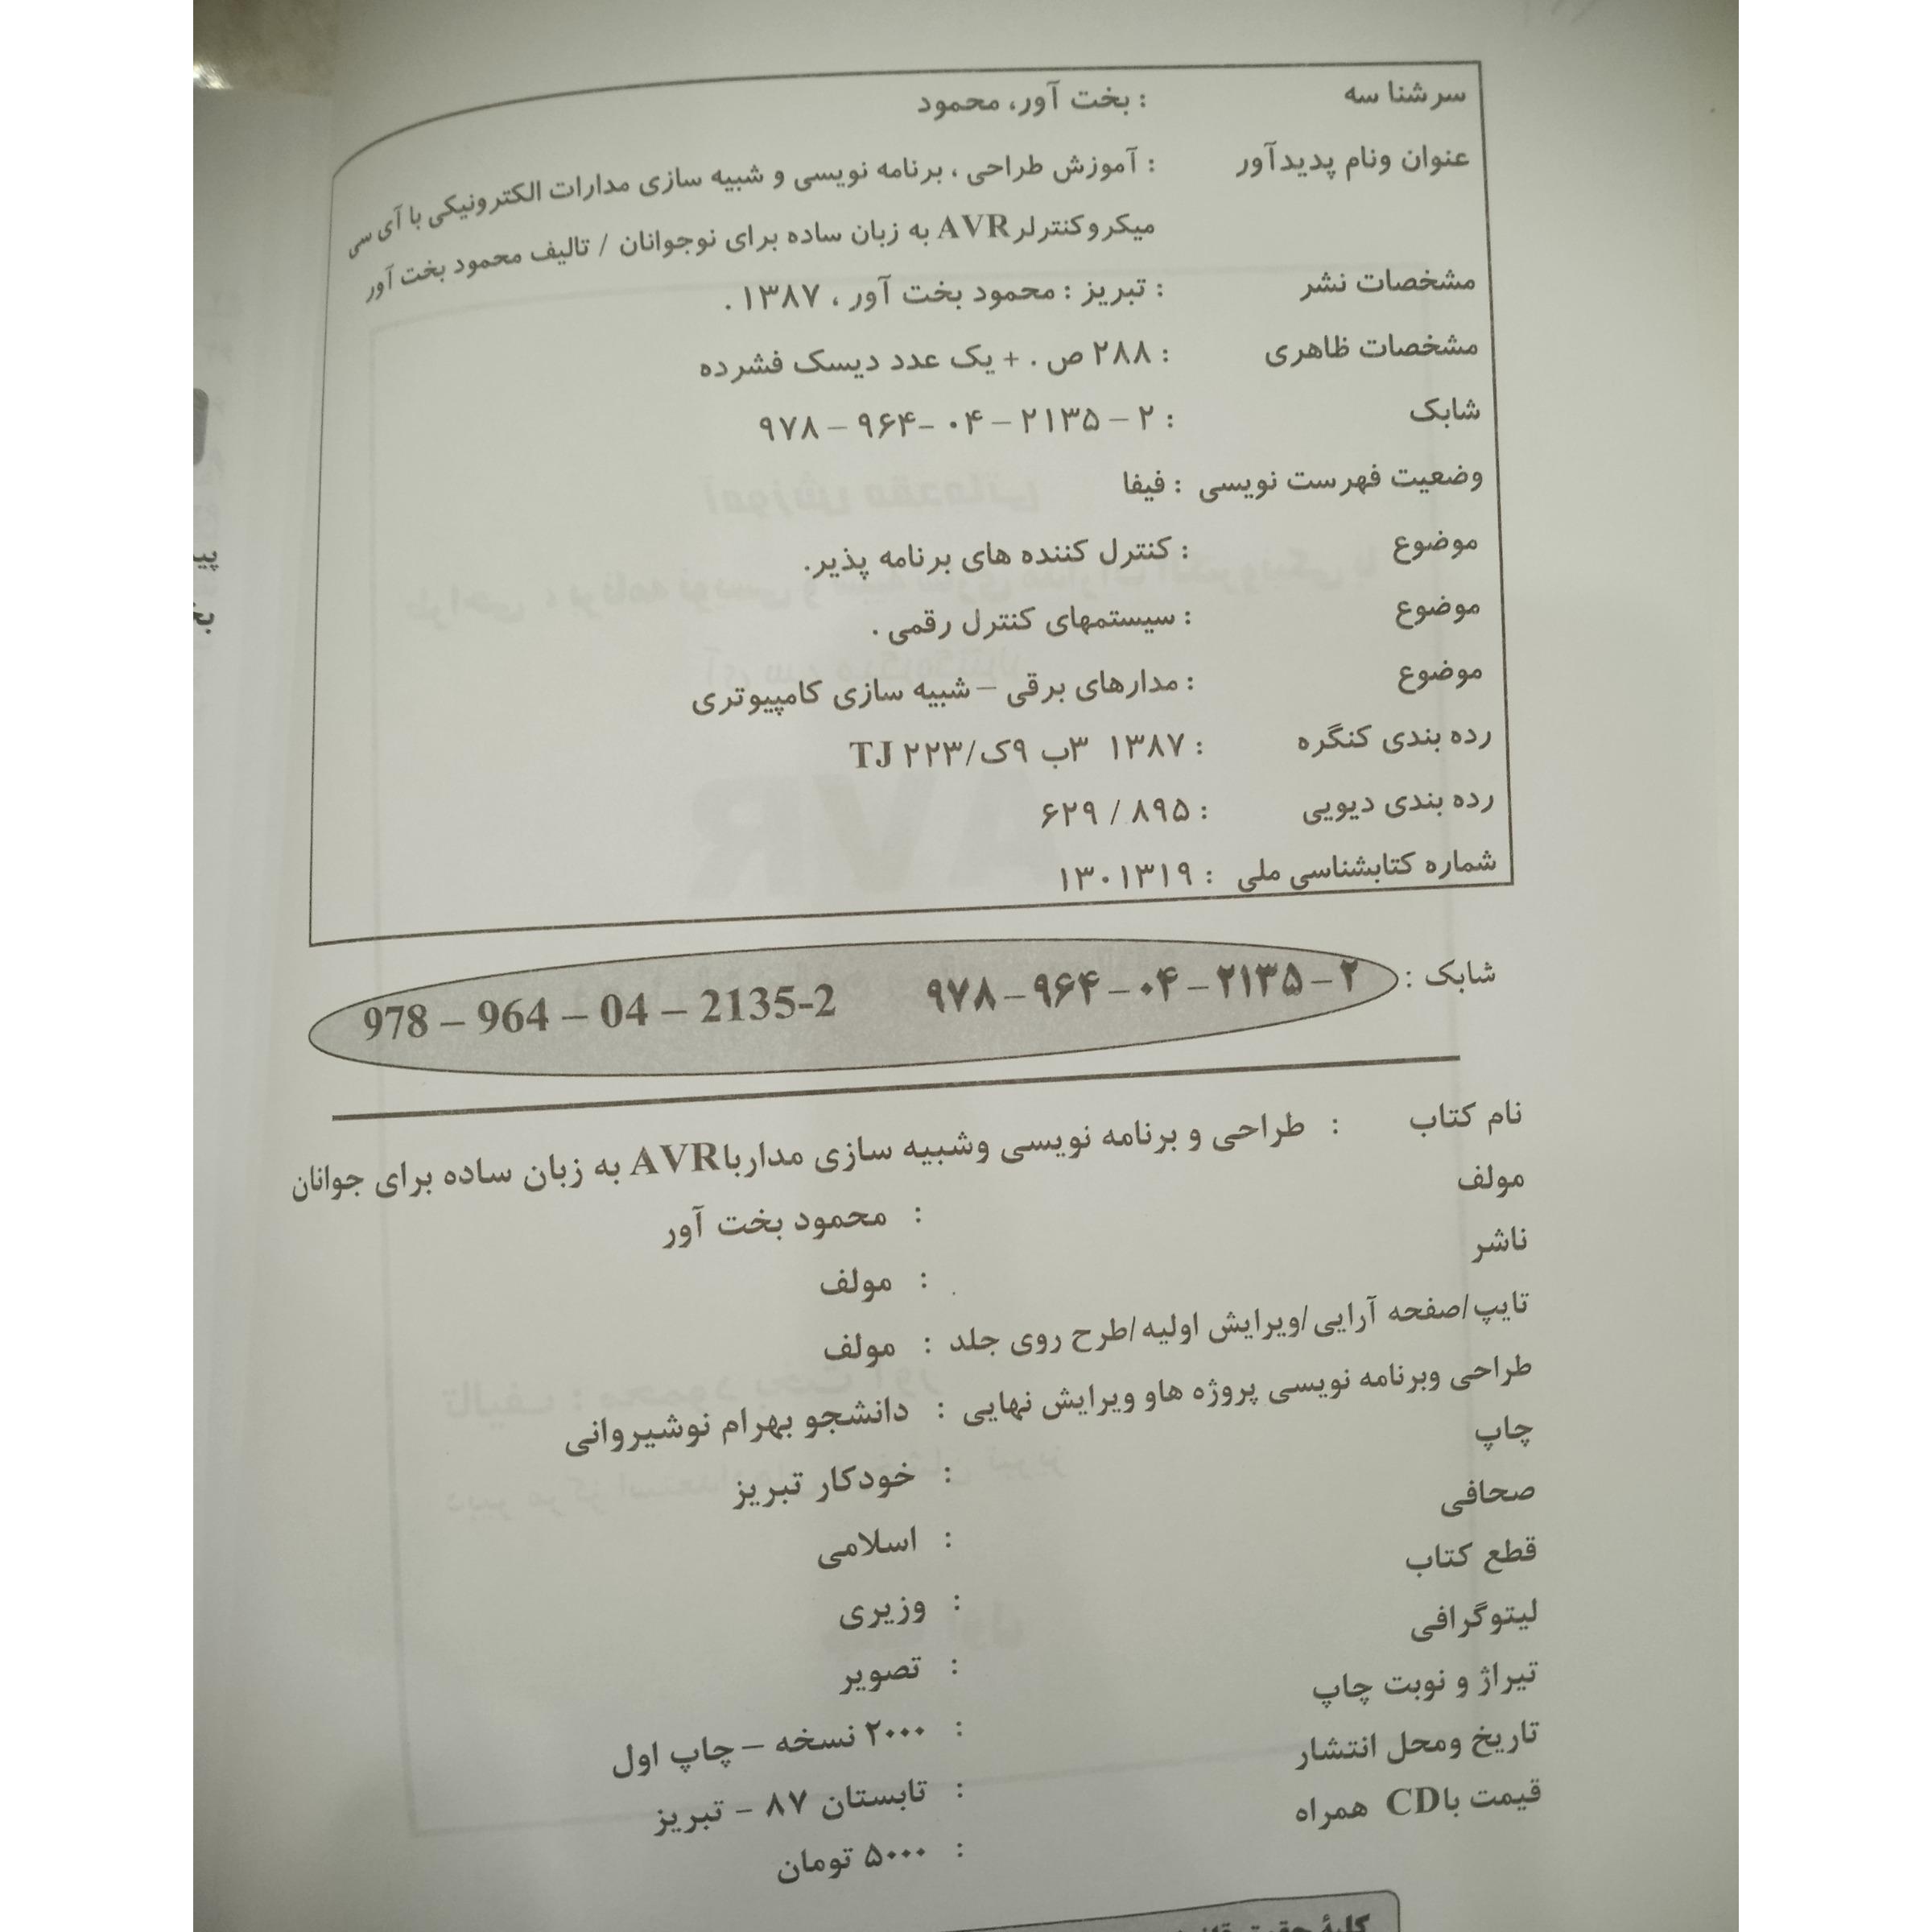 سرشنا سه : بخت آور، محمود
عنوان ونام پدیدآور : آموزش طراحی ، برنامه نویسی و شبیه سازی مدارات الکترونیکی با آی سی
میکروکنترلر AVR به زبان ساده برای نوجوانان / تالیف محمود بخت آور
مشخصات نشر : تبریز : محمود بخت آور ، ۱۳۸۷ .
مشخصات ظاهری : ۲۸۸ ص . + یک عدد دیسک فشرده
شابک : ۲ – ۲۱۳۵ – ۰۴ -۹۶۴ – ۹۷۸
وضعیت فهرست نویسی : فیفا
موضوع : کنترل کننده های برنامه پذیر.
موضوع : سیستمهای کنترل رقمی .
موضوع : مدارهای برقی – شبیه سازی کامپیوتری
رده بندی کنگره : ۱۳۸۷ ۳ب ۹ک/۲۲۳ TJ
رده بندی دیویی : ۸۹۵ / ۶۲۹
شماره کتابشناسی ملی : ۱۳۰۱۳۱۹
شابک : ۲ – ۲۱۳۵ – ۰۴ – ۹۶۴ – ۹۷۸ 978 – 964 – 04 – 2135-2
نام کتاب : طراحی و برنامه نویسی وشبیه سازی مدارباAVR به زبان ساده برای جوانان
مولف : محمود بخت آور
ناشر : مولف
تایپ/صفحه آرایی/ویرایش اولیه/طرح روی جلد : مولف
طراحی وبرنامه نویسی پروژه هاو ویرایش نهایی : دانشجو بهرام نوشیروانی
چاپ : خودکار تبریز
صحافی : اسلامی
قطع کتاب : وزیری
لیتوگرافی : تصویر
تیراژ و نوبت چاپ : ۲۰۰۰ نسخه – چاپ اول
تاریخ ومحل انتشار : تابستان ۸۷ – تبریز
قیمت باCD همراه : ۵۰۰۰ تومان